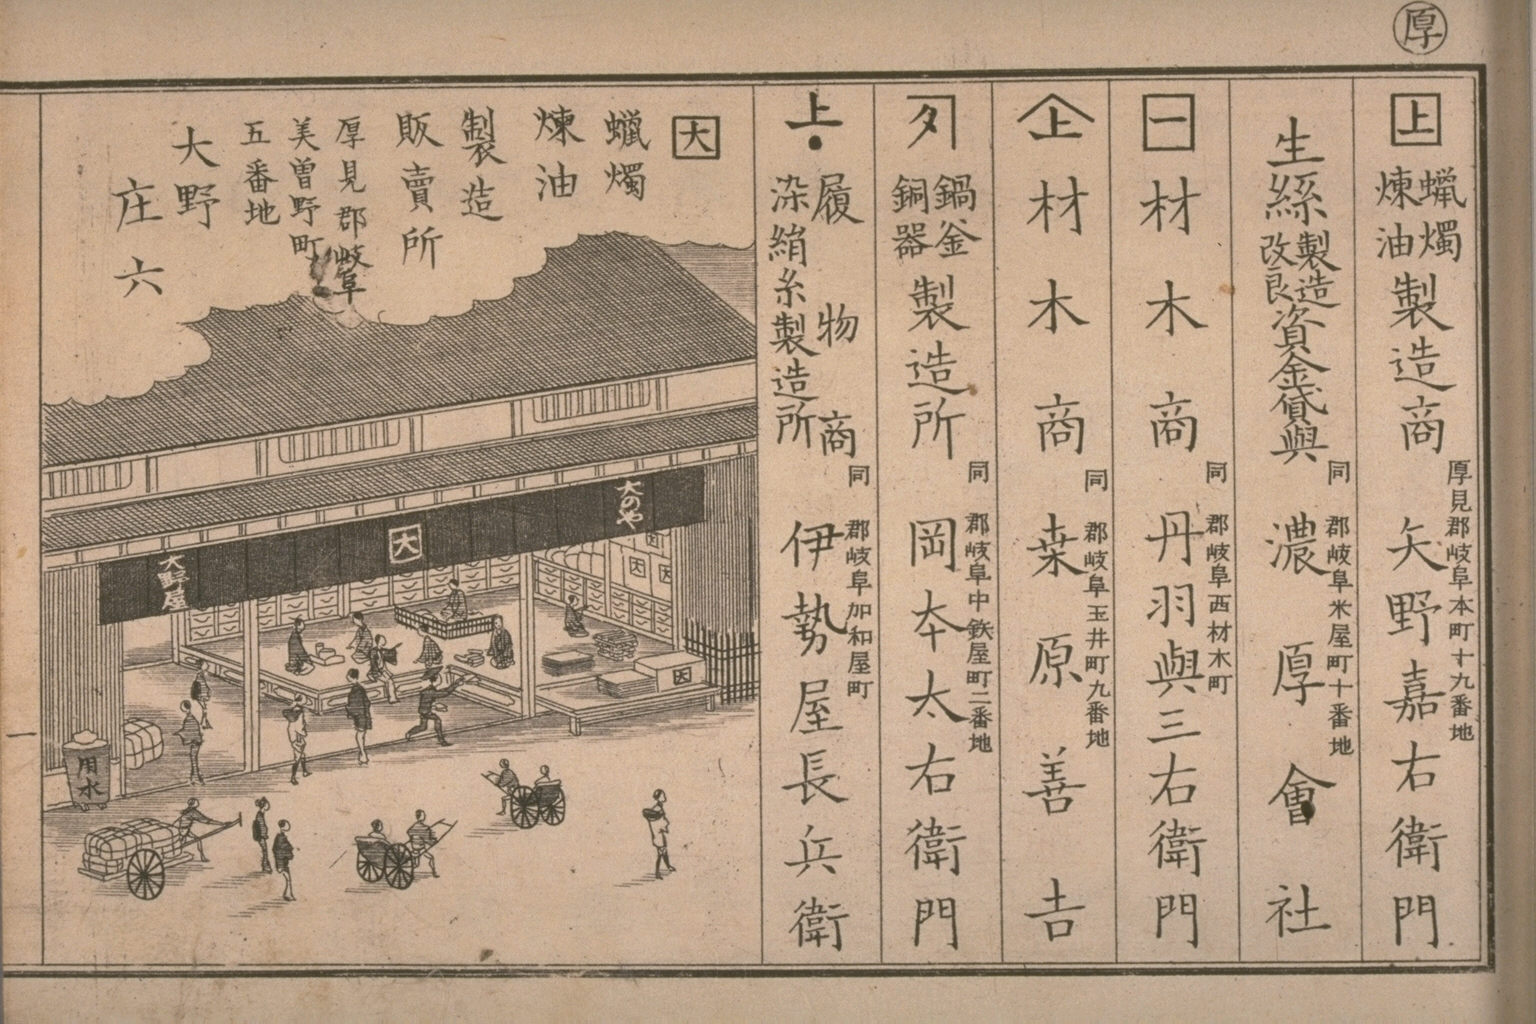 厚
上
蝋燭
煉油
製造商
厚見郡岐阜本町十九番地
矢野嘉右衛門
生絲
製造
改良
資金貸與
同郡岐阜米屋町十番地
濃厚會社
一
材木商
同郡岐阜西材木町
丹羽與三右衛門
上
材木商
同郡岐阜玉井町九番地
桒原善吉
タ
鍋釜
銅器
製造所
同郡岐阜中鉄屋町二番地
岡本太右衛門
上
履物商
染絹糸製造所
同郡岐阜加和屋町
伊勢屋長兵衛
大
蝋燭
煉油
製造
販賣所
厚見郡岐阜
美曽野町
五番地
大野
庄六
大のや
大
大野屋
用水
一